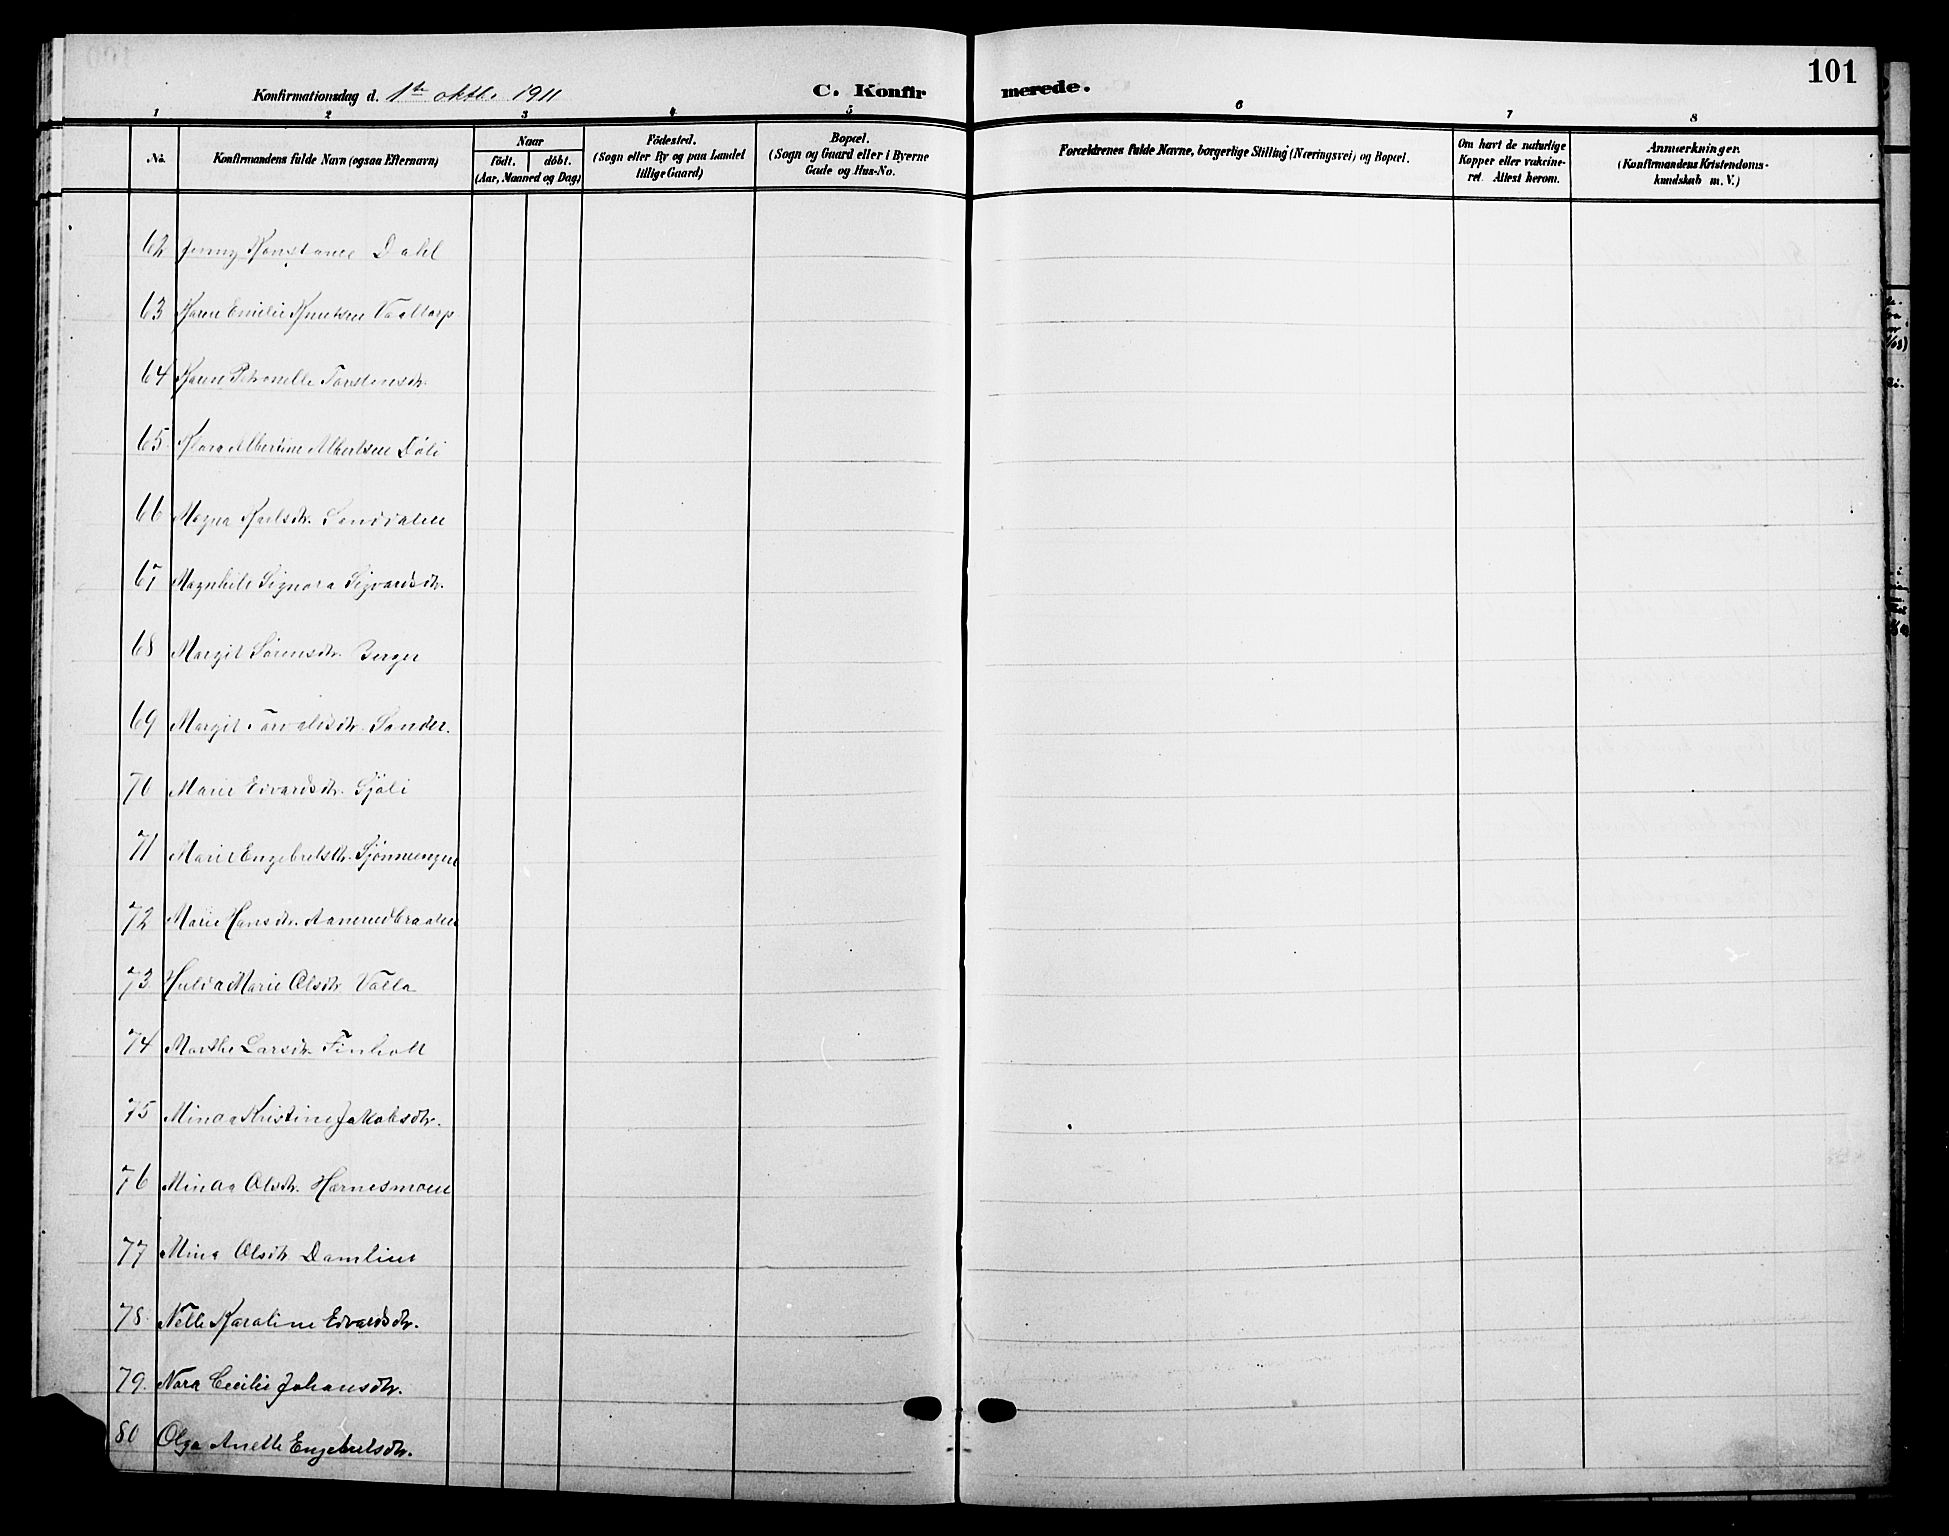 101
Konfirmationsdag d. 1ste oktbr 1911
C. Konfir merede.
1 2 3 4 5 6 7 8
No.
Konfirmandens fulde Navn (ogsaa Efternavn)
Naar
födt. döbt.
(Aar, Maaned og Dag)
Födested.
(Sogn eller By og paa Landet
tillige Gaard)
Bopæl.
(Sogn og Gaard eller i Byerne
Gade og Hus-No.
Forældrenes fulde Navne, borgerlige Stilling (Næringsvei) og Bopæl.
Om havt de naturlige
Kopper eller vakcine-
ret. Attest herom.
Anmærkninger.
(Konfirmandens Kristendoms-
kundskab m. V.)
62 Jenny Konstanse Dahl
63 Karen Emilie Knutsen Valtorp
64 Karen Petronelle Torstensdtr.
65 Klara Albertine Albertsen Döli
66 Magna Karlsdtr. Sanddalen
67 Magnhild Signora Sigvardsdtr.
68 Margit Sörensdtr. Berger
69 Margit Torvaldsdtr. Sander.
70 Marie Edvardsdtr. Sjöli
71 Marie Engebretsdtr. Sjönnengen
72 Marie Hansdtr. Aanerudbraaten
73 Hulda Marie Olsdtr Valla
74 Marthe Larsdtr. Finholt
75 Minda Kristine Jakobsdtr.
76 Minda Olsdtr. Hærnesmoen
77 Mina Olsdtr Damlien
78 Nelli Karoline Edvardsdtr.
79. Nora Cecilie Johansdtr.
80 Olga Anette Engebretsdtr.